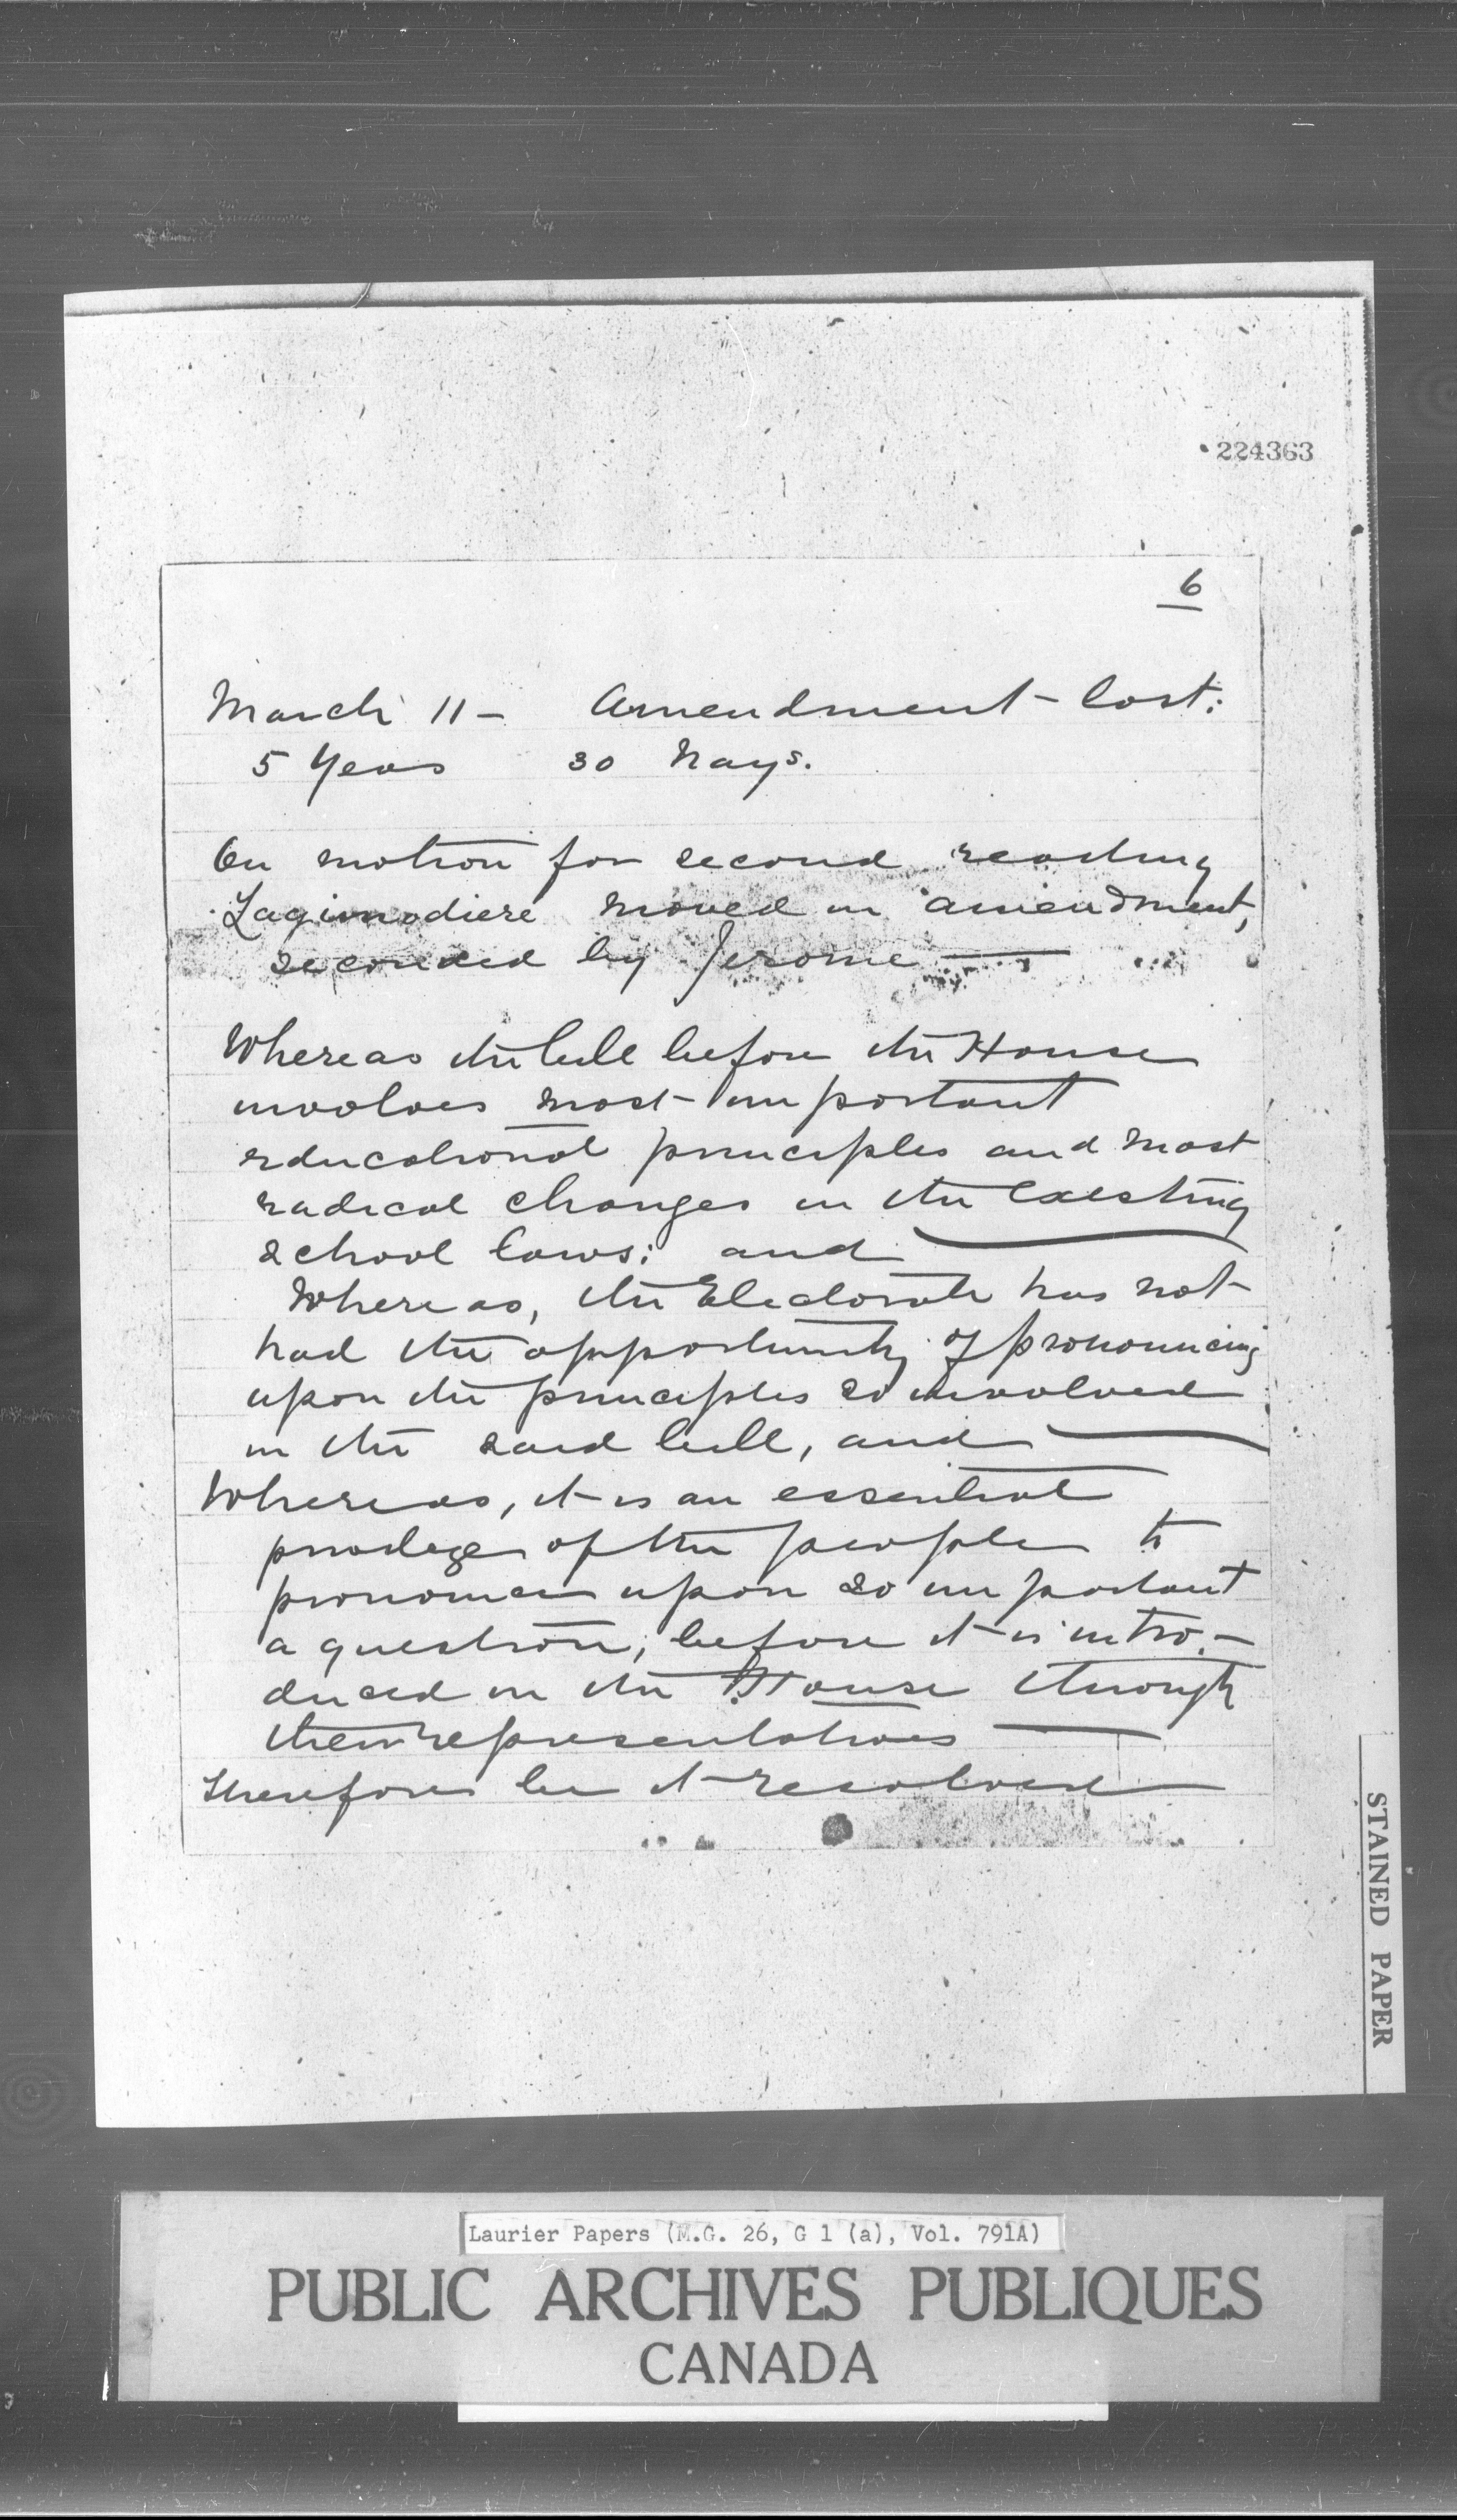 224363
6
March 11 - Amendment lost:
5 Yeas 30 Nays.
On motion for second reading
Lagimodiere moved in amendment,
seconded by Jerome —
Whereas the bill before the House
involves most important
educational principles and most
radical changes in the existing
school laws; and
Whereas, the Electorate has not
had the opportunity of pronouncing
upon the principles so involved
in the said bill, and
Whereas, it is an essential
privilege of the people to
pronounce upon so important
a question, before it is intro-
duced in the House through
their representatives —
Therefore be it resolved
STAINED PAPER
Laurier Papers (M.G. 26, G 1 (a), Vol. 791A)
PUBLIC ARCHIVES PUBLIQUES
CANADA